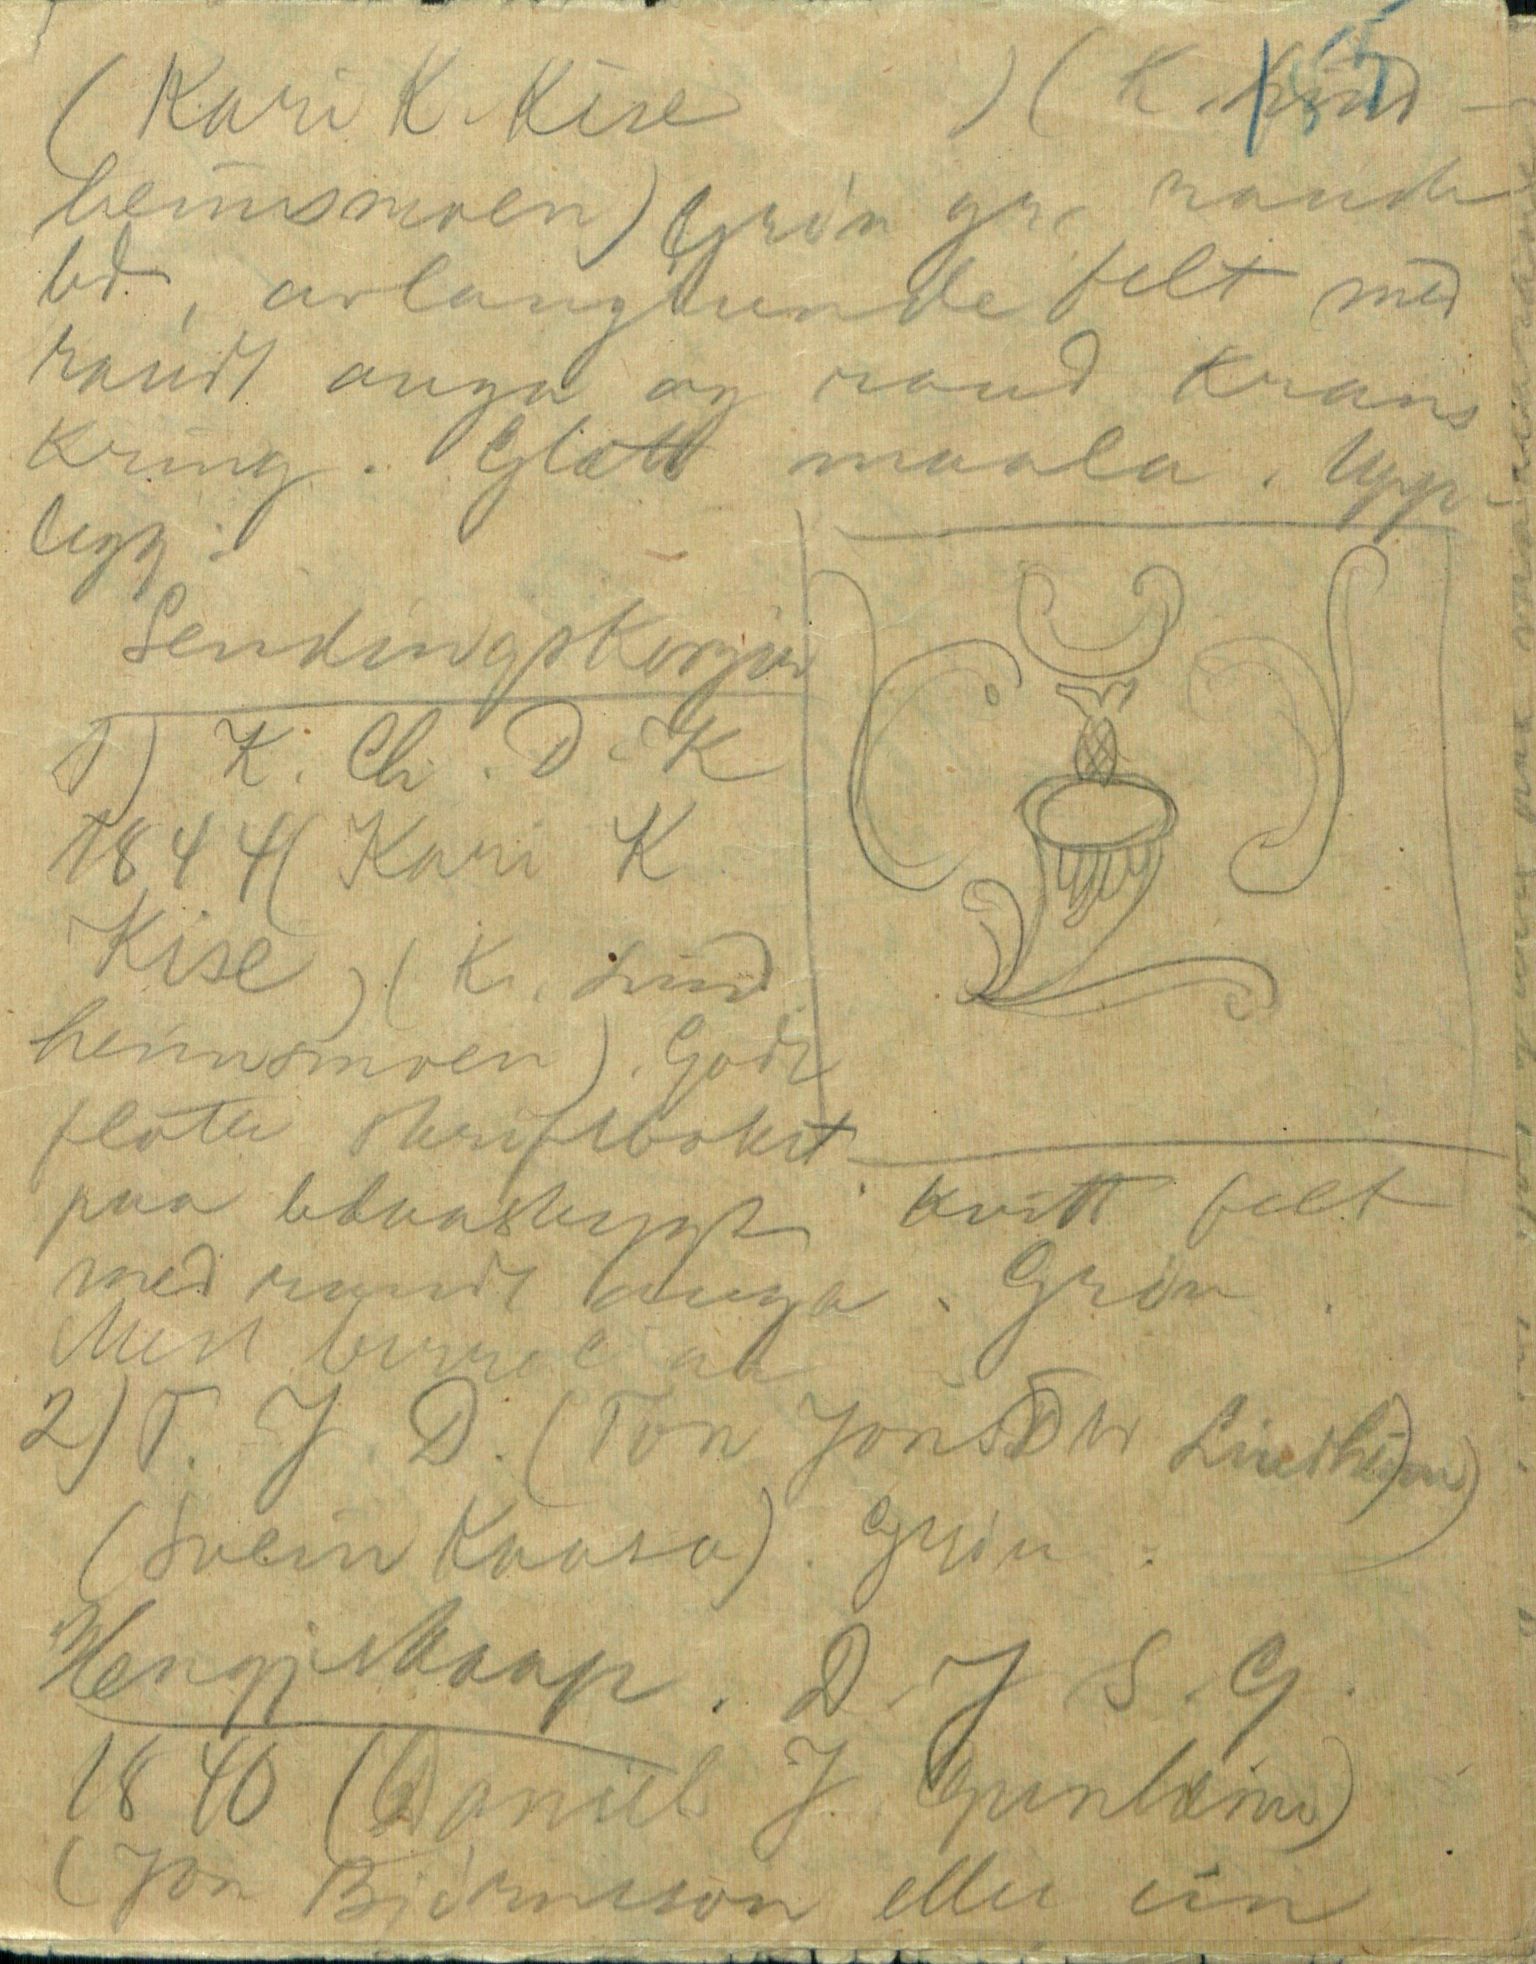 155
(Kari K. Kise ) (K. Lind-
heimsmoen) Grøn gr, raude
bd, avlangrunde felt med
raudt auga og raud Krans
Kring. Glatt maala. Upp-
legg:
Sendingskorgar
1) K. Ch. D. K
1844 (Kari K
Kise) (K. Lind
heimsmoen). Godt
fløta skriftbokst
paa blaaskygt. Kvitt felt
med raudt auga. Grøn.
Mest
2) T. J. D. (Ton Jons D tr Lindheim)
(Svein Kaasa). Grøn.
Hengjeskaap. D. J S. G.
1840 (Daniel J. Gunleiks)
(Jon Bjørnsson eller ein